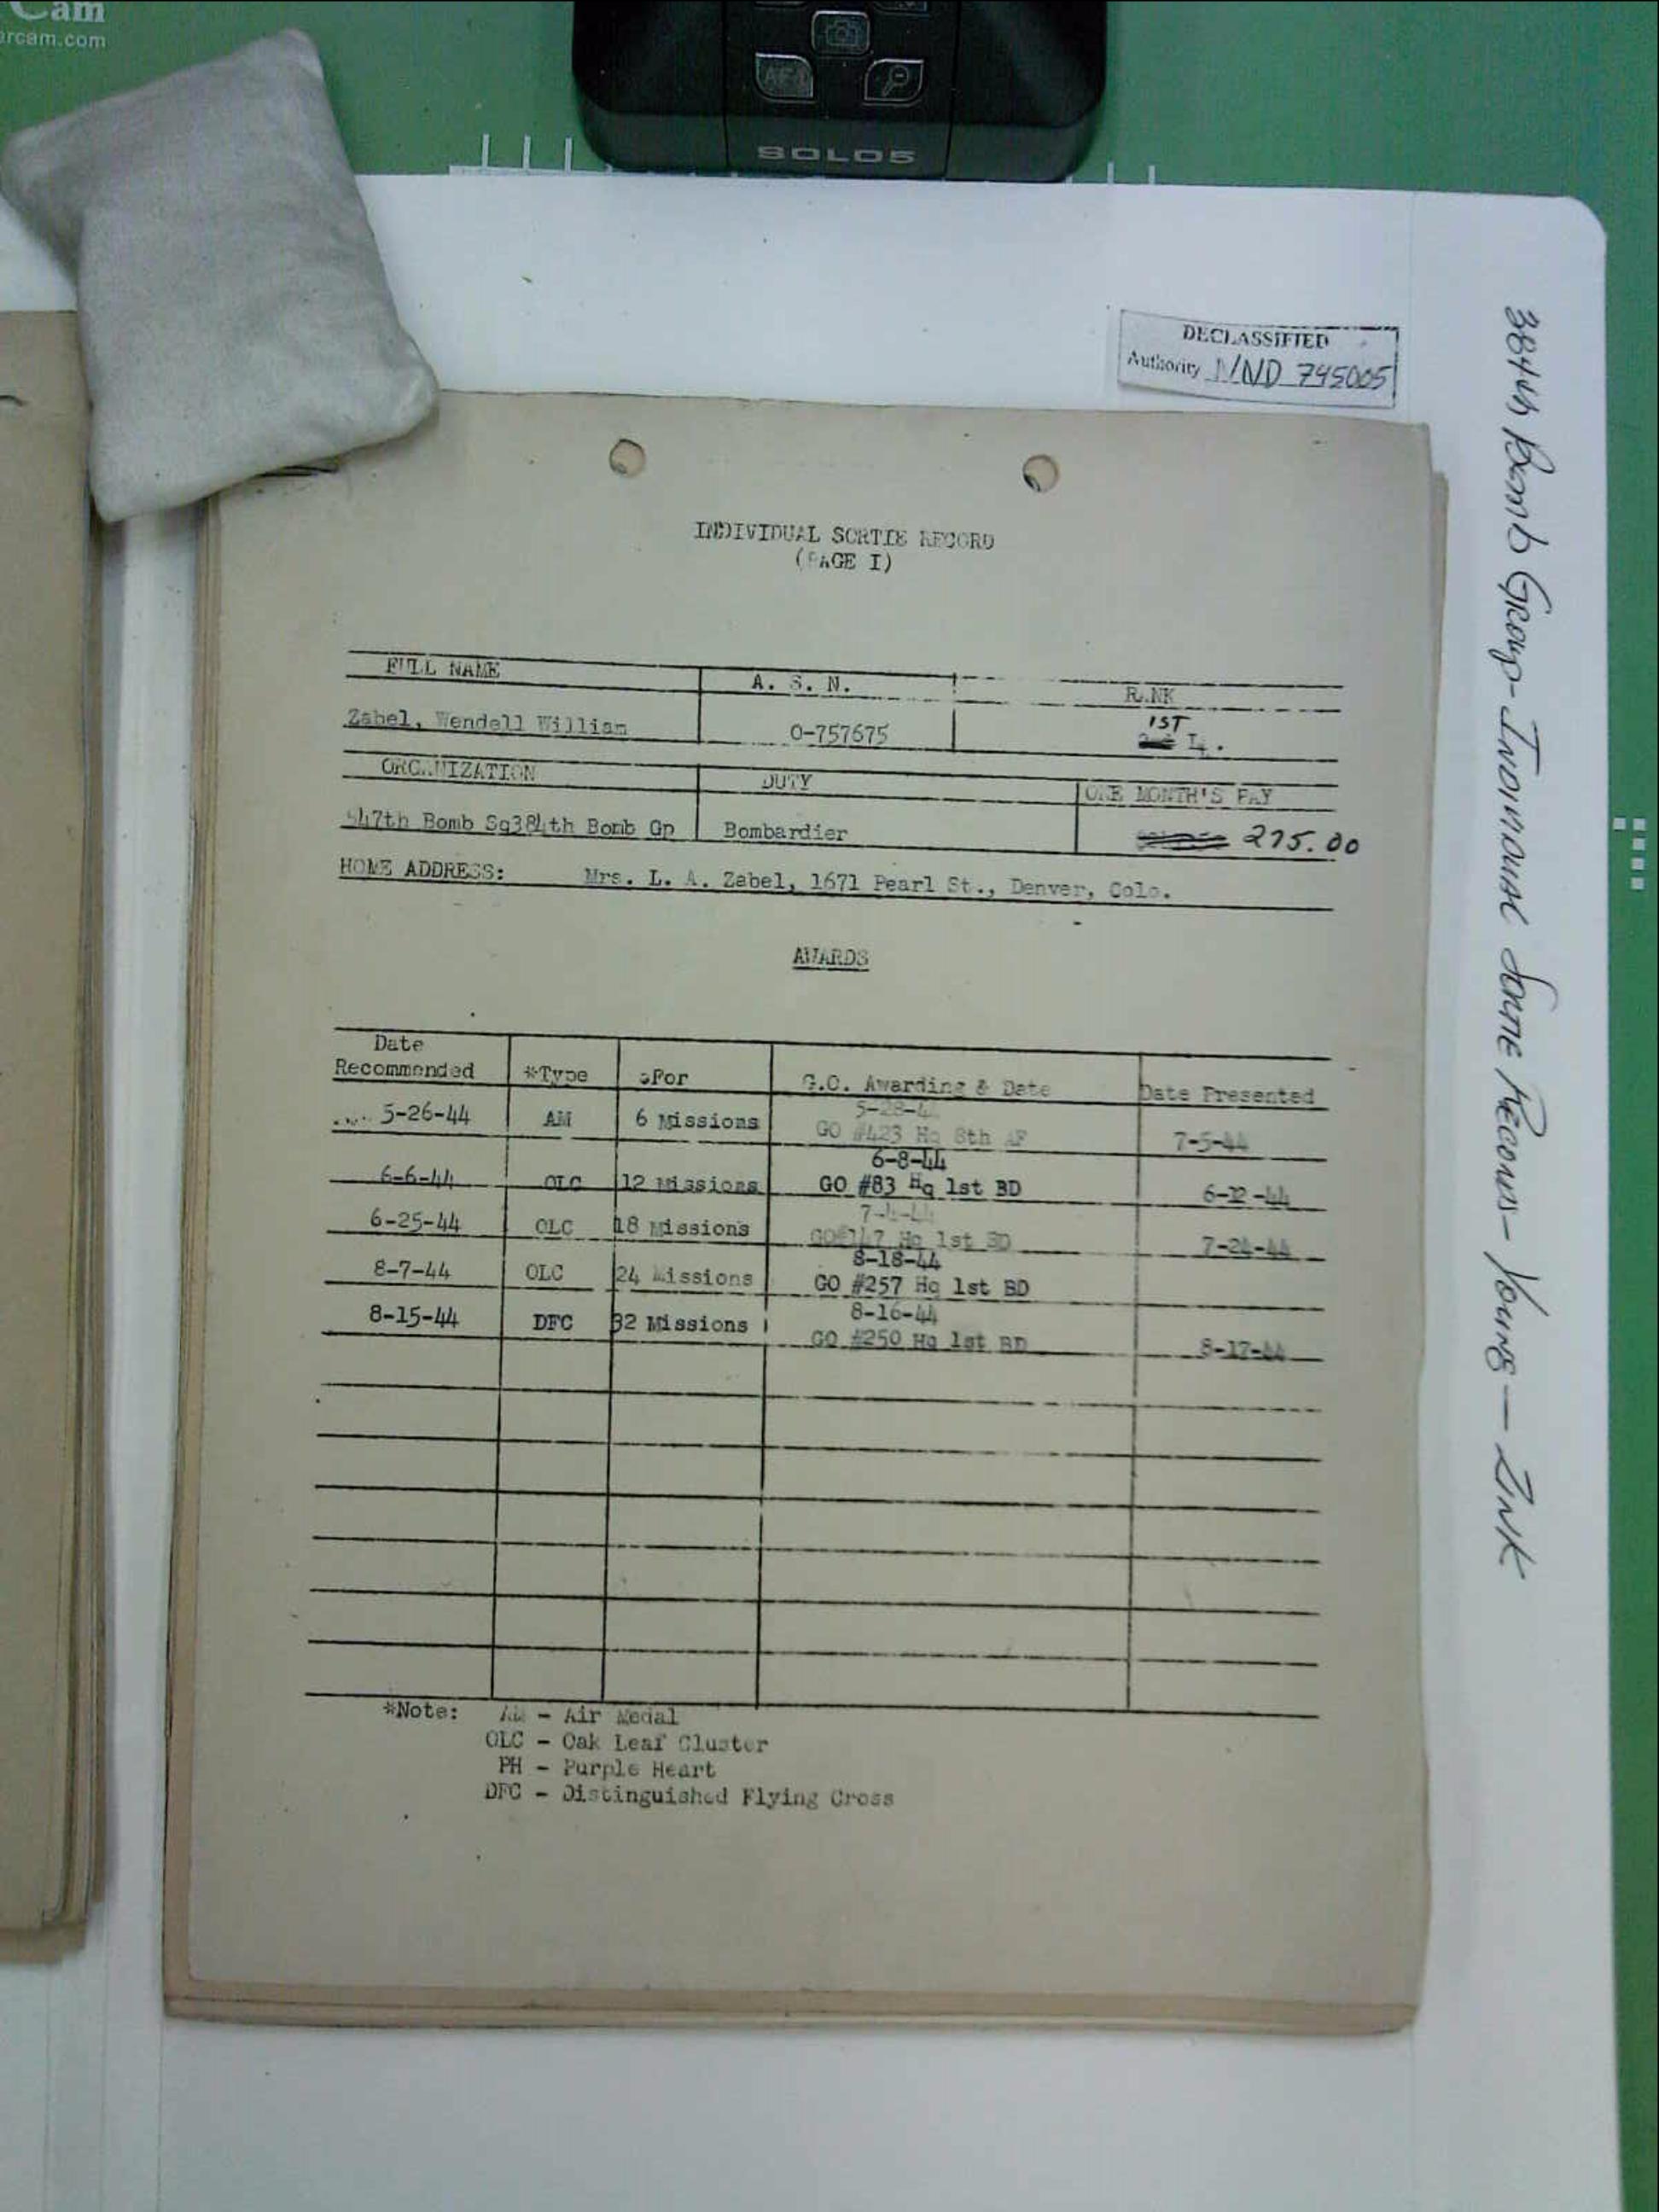 cam
SOLO5
DECLASSIFIED
Authority NND 745005
384th Bomb Group - Individual Sortie Records - Young — Zink
INDIVIDUAL SORTIE RECORD
(PAGE I)
FULL NAME A. S. N. RANK
Zabel, Wendell William 0-757675 1ST Lt.
ORGANIZATION DUTY ONE MONTH'S PAY
547th Bomb Sq384th Bomb Gp Bombardier 275.00
HOME ADDRESS: Mrs. L. A. Zabel, 1671 Pearl St., Denver, Colo.
AWARDS
Date
Recommended *Type For G.O. Awarding & Date Date Presented
5-28-44
5-26-44 AM 6 Missions GO #423 Hq 8th AF 7-5-44
6-8-44
6-6-44 OLC 12 Missions GO #83 Hq 1st BD 6-12-44
6-25-44 OLC 18 Missions GO#147 Hq 1st BD 7-24-44
8-18-44
8-7-44 OLC 24 Missions GO #257 Hq 1st BD
8-16-44
8-15-44 DFC 32 Missions GO #250 Hq 1st BD 8-17-44
*Note: AM - Air Medal
OLC - Oak Leaf Cluster
PH - Purple Heart
DFC - Distinguished Flying Cross